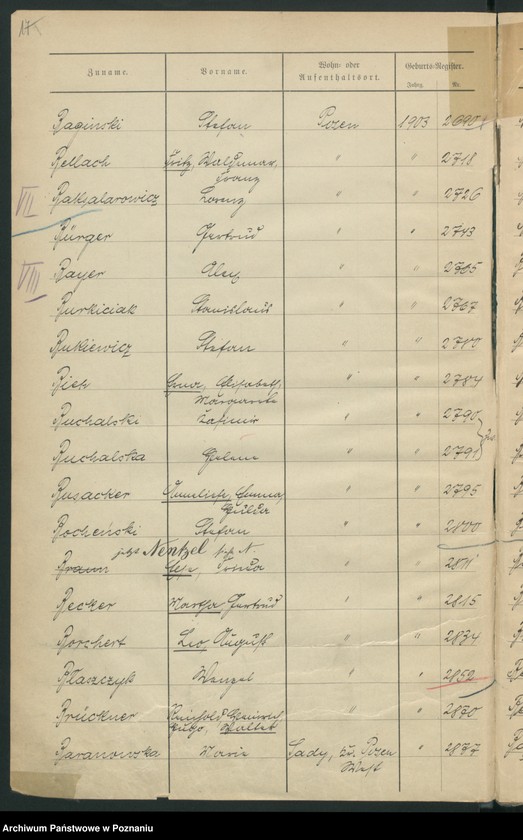 17
Zuname. Vorname. Wohn- oder Aufenthaltsort. Geburts-Register.
Jahrg. Nr.
Baginski Stefan Posen 1903 2690
Bellach Fritz, Waldemar, " " 2718
Franz
VII Bakalarowicz Lorenz " " 2726
Bürger Gertrud " " 2743
VIII Bayer Alex " " 2765
Burkiciak Stanislaus " " 2767
Bukiewicz Stefan " " 2780
Bich Erna, Elisabeth, " " 2784
Margarete
Buchalski Kasimir " " 2790
Buchalska Helene " " 2791
Busacker Annliese, Emma, " " 2795
Hulda
Bochenski Stefan " " 2800
jetzt Nentzel
Braun Else, Frieda " " 2811
Becker Marga Gertrud " " 2815
Borchert Leo August " " 2834
Blaszczyk Wenzel " " 2852
Brückner Reinhold Heinrich " " 2870
Hugo, Walter
Baranowska Marie Sady, Kr. Posen " 2877
West
Archiwum Państwowe w Poznaniu